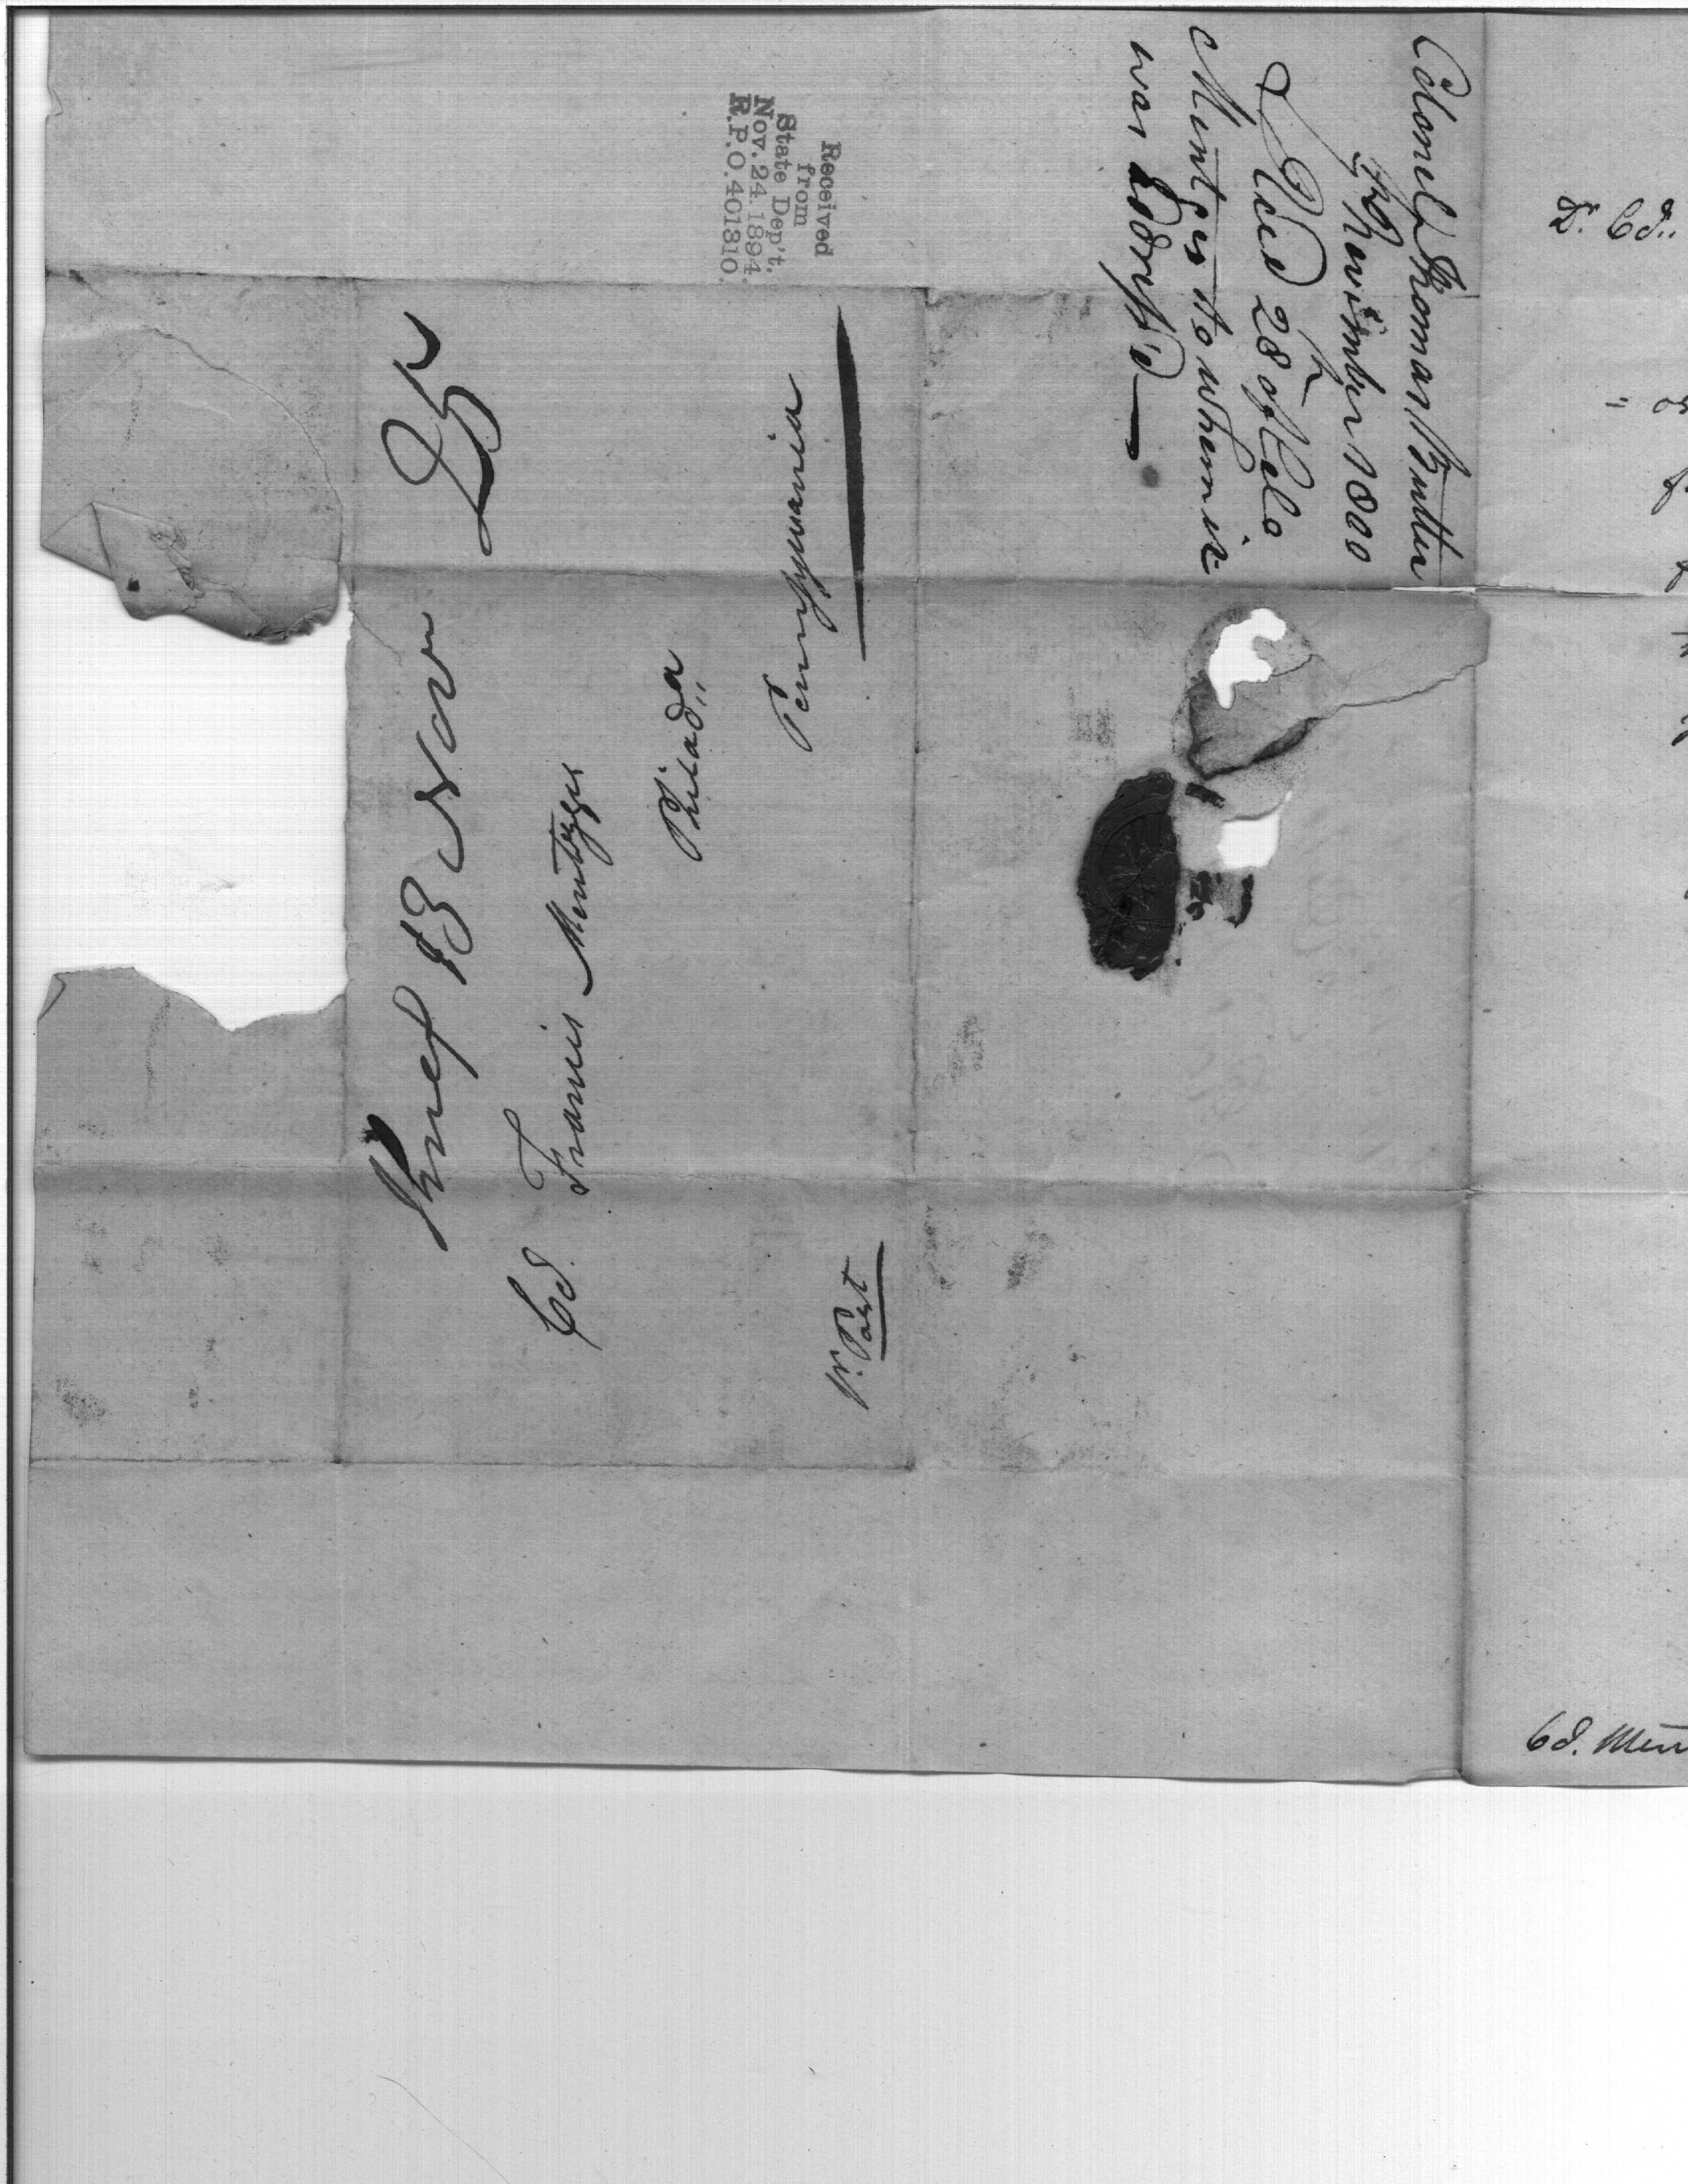 Colonel Thomas Butler
7th November 1800
Rec'd 28 of do
Mentges to whom it
was addres'd
Received
from
State Dep't.
Nov. 24. 1894.
R.P.O. 401310.
25
13 Nov
Col. Francis Mentges
Philad,,a
Pennsylvania
pr. Post
Dr. Col.,
Col. Men